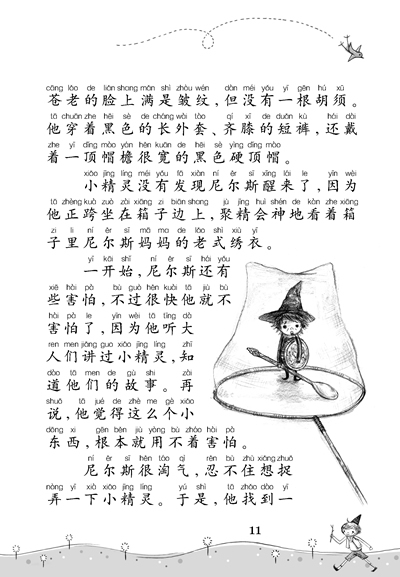 cāng lǎo de liǎn shang mǎn shì zhòu wén dàn méi yǒu yì gēn hú xū
苍老的脸上满是皱纹，但没有一根胡须。
tā chuān zhe hēi sè de cháng wài tào qí xī de duǎn kù hái dài
他穿着黑色的长外套、齐膝的短裤，还戴
zhe yì dǐng mào yán hěn kuān de hēi sè yìng dǐng mào
着一顶帽檐很宽的黑色硬顶帽。
xiǎo jīng líng méi yǒu fā xiàn ní ěr sī xǐng lái le yīn wèi
小精灵没有发现尼尔斯醒来了，因为
tā zhèng kuà zuò zài xiāng zi biān shang jù jīng huì shén de kàn zhe xiāng
他正跨坐在箱子边上，聚精会神地看着箱
zi li ní ěr sī mā ma de lǎo shì xiù yī
子里尼尔斯妈妈的老式绣衣。
yì kāi shǐ ní ěr sī hái yǒu
一开始，尼尔斯还有
xiē hài pà bú guò hěn kuài tā jiù bú
些害怕，不过很快他就不
hài pà le yīn wèi tā tīng dà
害怕了，因为他听大
ren men jiǎng guo xiǎo jīng líng zhī
人们讲过小精灵，知
dào tā men de gù shi zài
道他们的故事。再
shuō tā jué de zhè me gè xiǎo
说，他觉得这么个小
dōng xi gēn běn jiù yòng bù zháo hài pà
东西，根本就用不着害怕。
ní ěr sī hěn táo qì rěn bú zhù xiǎng zhuō
尼尔斯很淘气，忍不住想捉
nòng yí xià xiǎo jīng líng yú shì tā zhǎo dào yì
弄一下小精灵。于是，他找到一
11